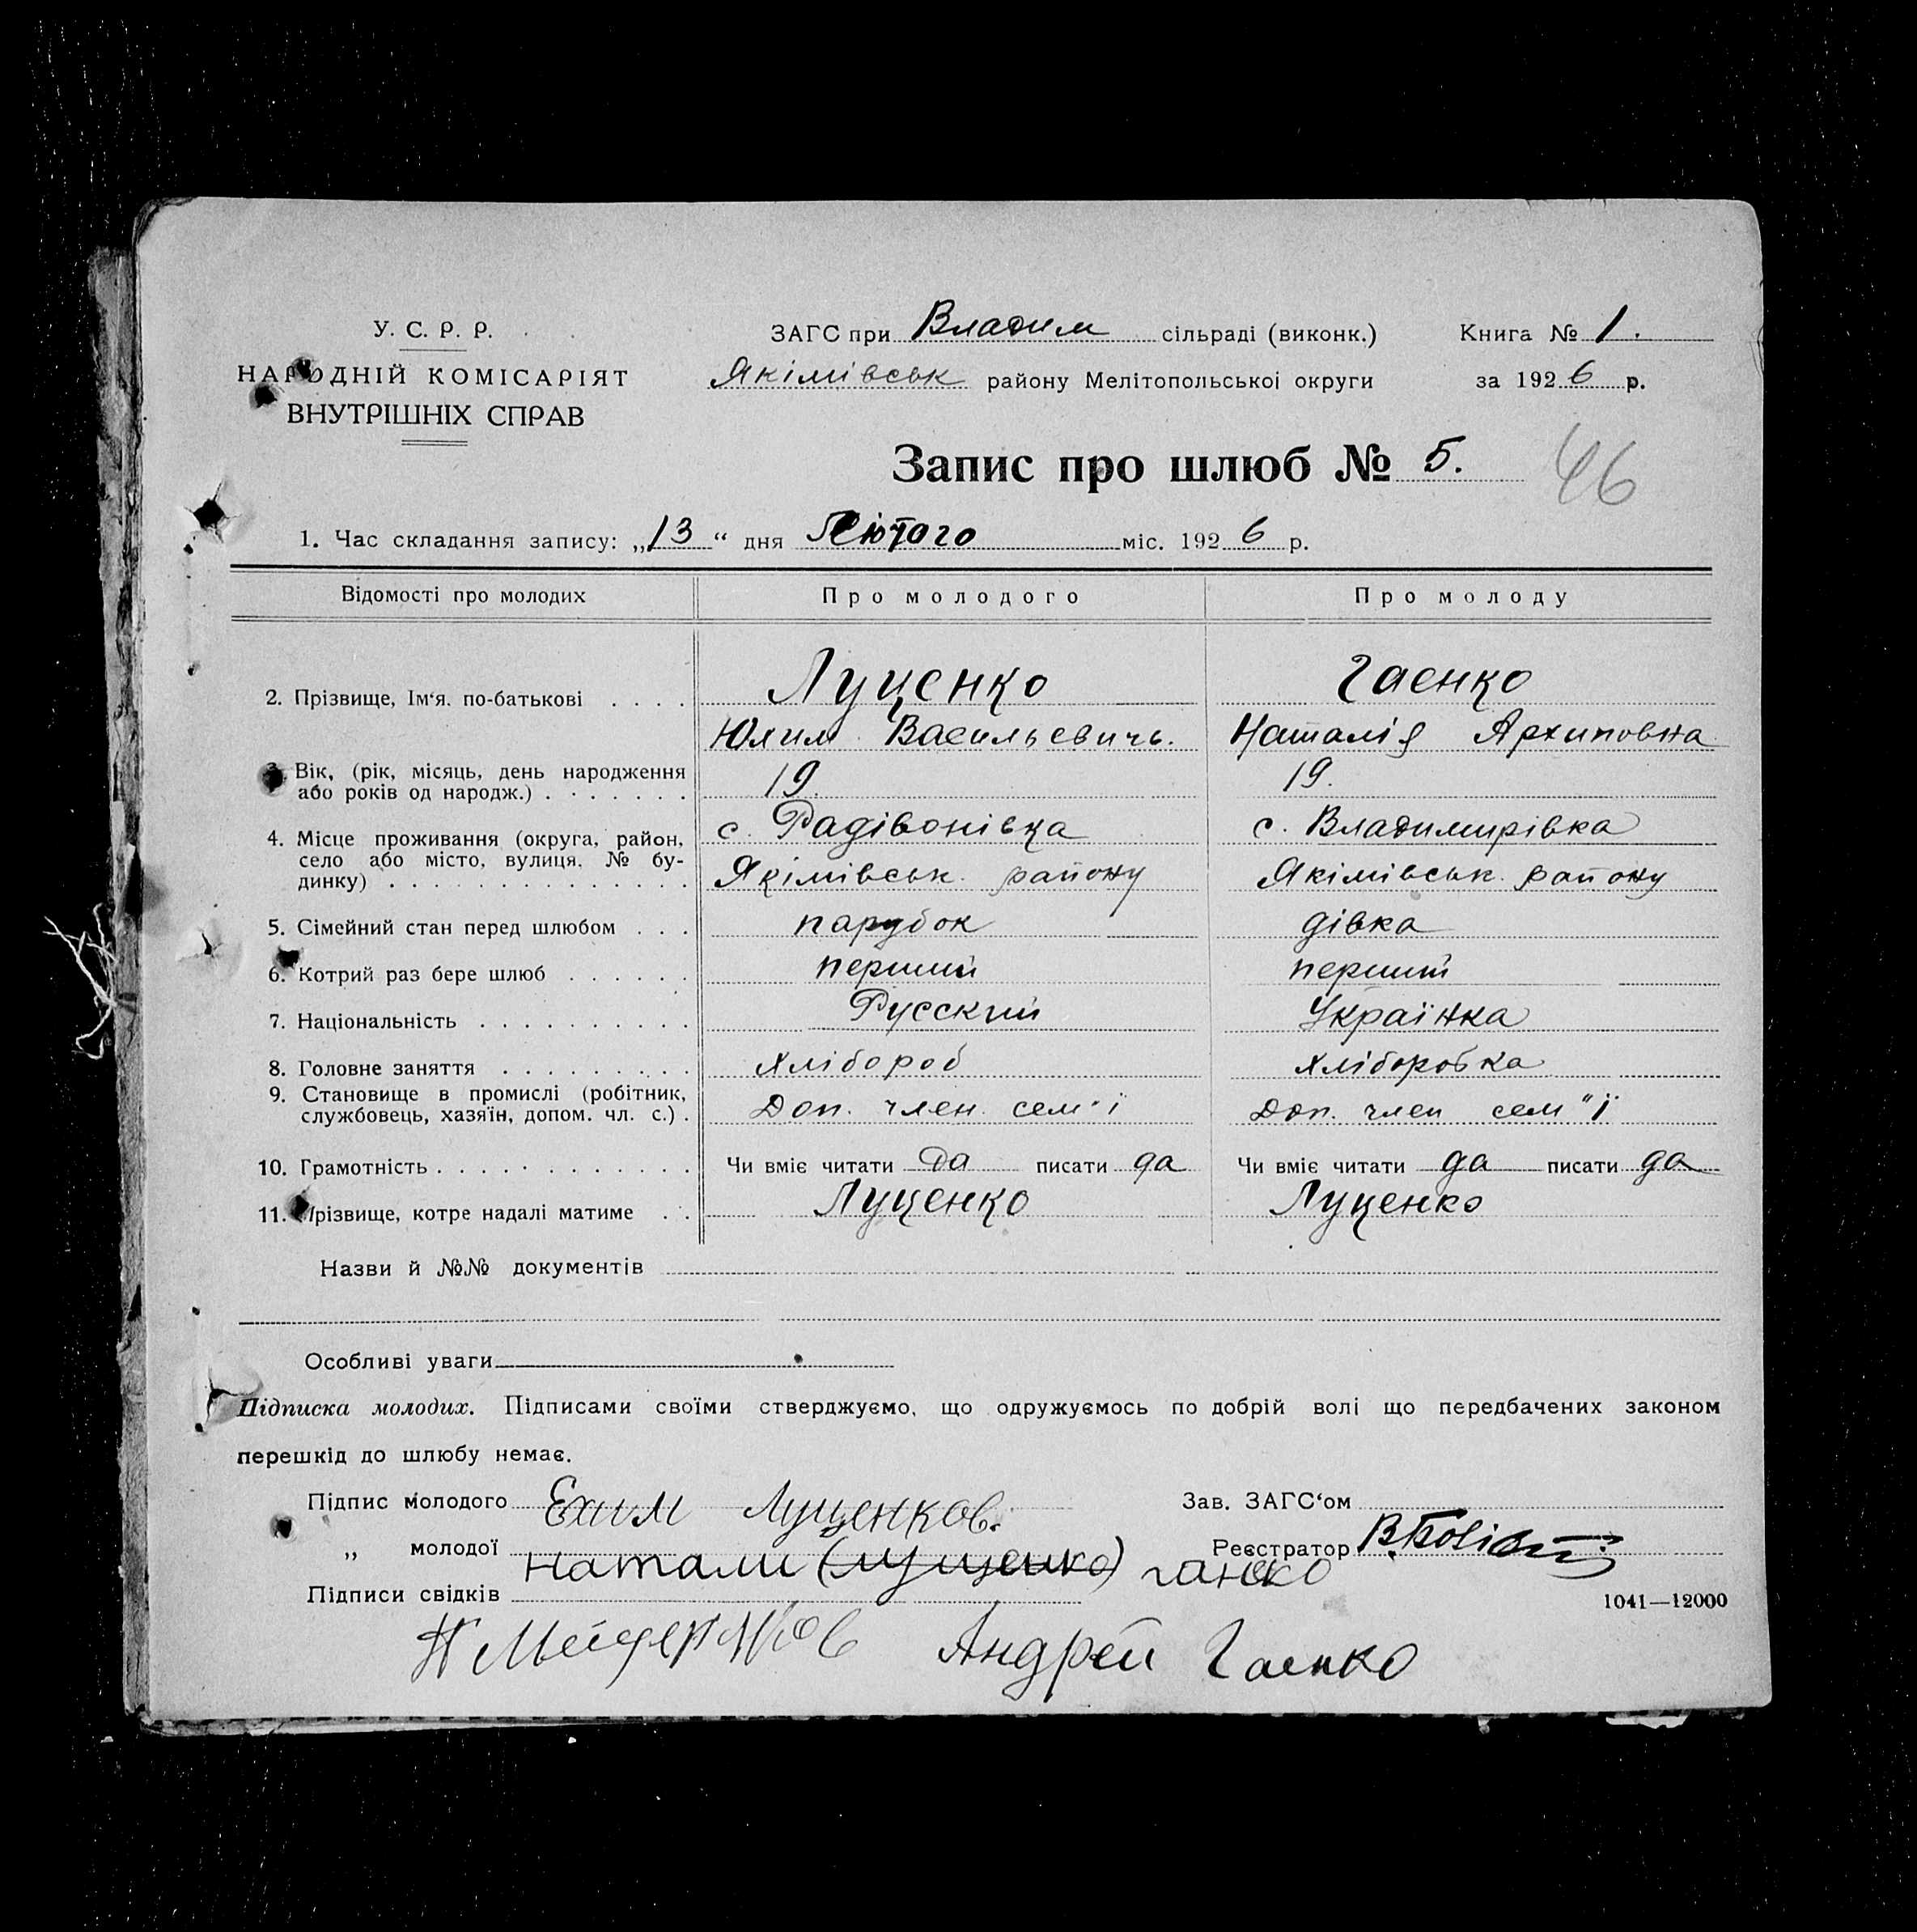 У. С. Р. Р.
НАРОДНІЙ КОМІСАРІЯТ
ВНУТРІШНІХ СПРАВ
ЗАГС при Владим сільраді (виконк.)
Якімівськ району Мелітопольської округи
Книга № 1.
за 1926 р.
Запис про шлюб № 5.
46
1. Час складання запису: „13“ дня Лютого міс. 1926 р.
Відомості про молодих Про молодого Про молоду
2. Прізвище, Ім‘я. по-батькові . . . . Луценко Гаенко
Юхим Васильевичь. Наталія Архиповна
3. Вік, (рік, місяць, день народження або років од народж.) . . . . . . . 19. 19.
4. Місце проживання (округа, район, село або місто, вулиця. № будинку) . . . . . . . . . . . . . . с. Радівонівка с. Владимирівка
Якімівськ. району Якімівськ. району
5. Сімейний стан перед шлюбом . . . парубок дівка
6. Котрий раз бере шлюб . . . . . . перший перший
7. Національність . . . . . . . . . . Русский Українка
8. Головне заняття . . . . . . . . . Хлібороб Хліборобка
9. Становище в промислі (робітник, службовець, хазяїн, допом. чл. с.) . Доп. член. сем"ї Доп. член сем"ї
10. Грамотність . . . . . . . . . . . . Чи вміє читати да писати да Чи вміє читати да писати да
11. Прізвище, котре надалі матиме . . Луценко Луценко
Назви й №№ документів
Особливі уваги
Підписка молодих. Підписами своїми стверджуємо, що одружуємось по добрій волі що передбачених законом
перешкід до шлюбу немає.
Підпис молодого Ехим Луценков. Зав. ЗАГС‘ом
„ молодої Натали (Луценко) ганеко Реєстратор
Підписи свідків
1041—12000
Андрей Гаенко